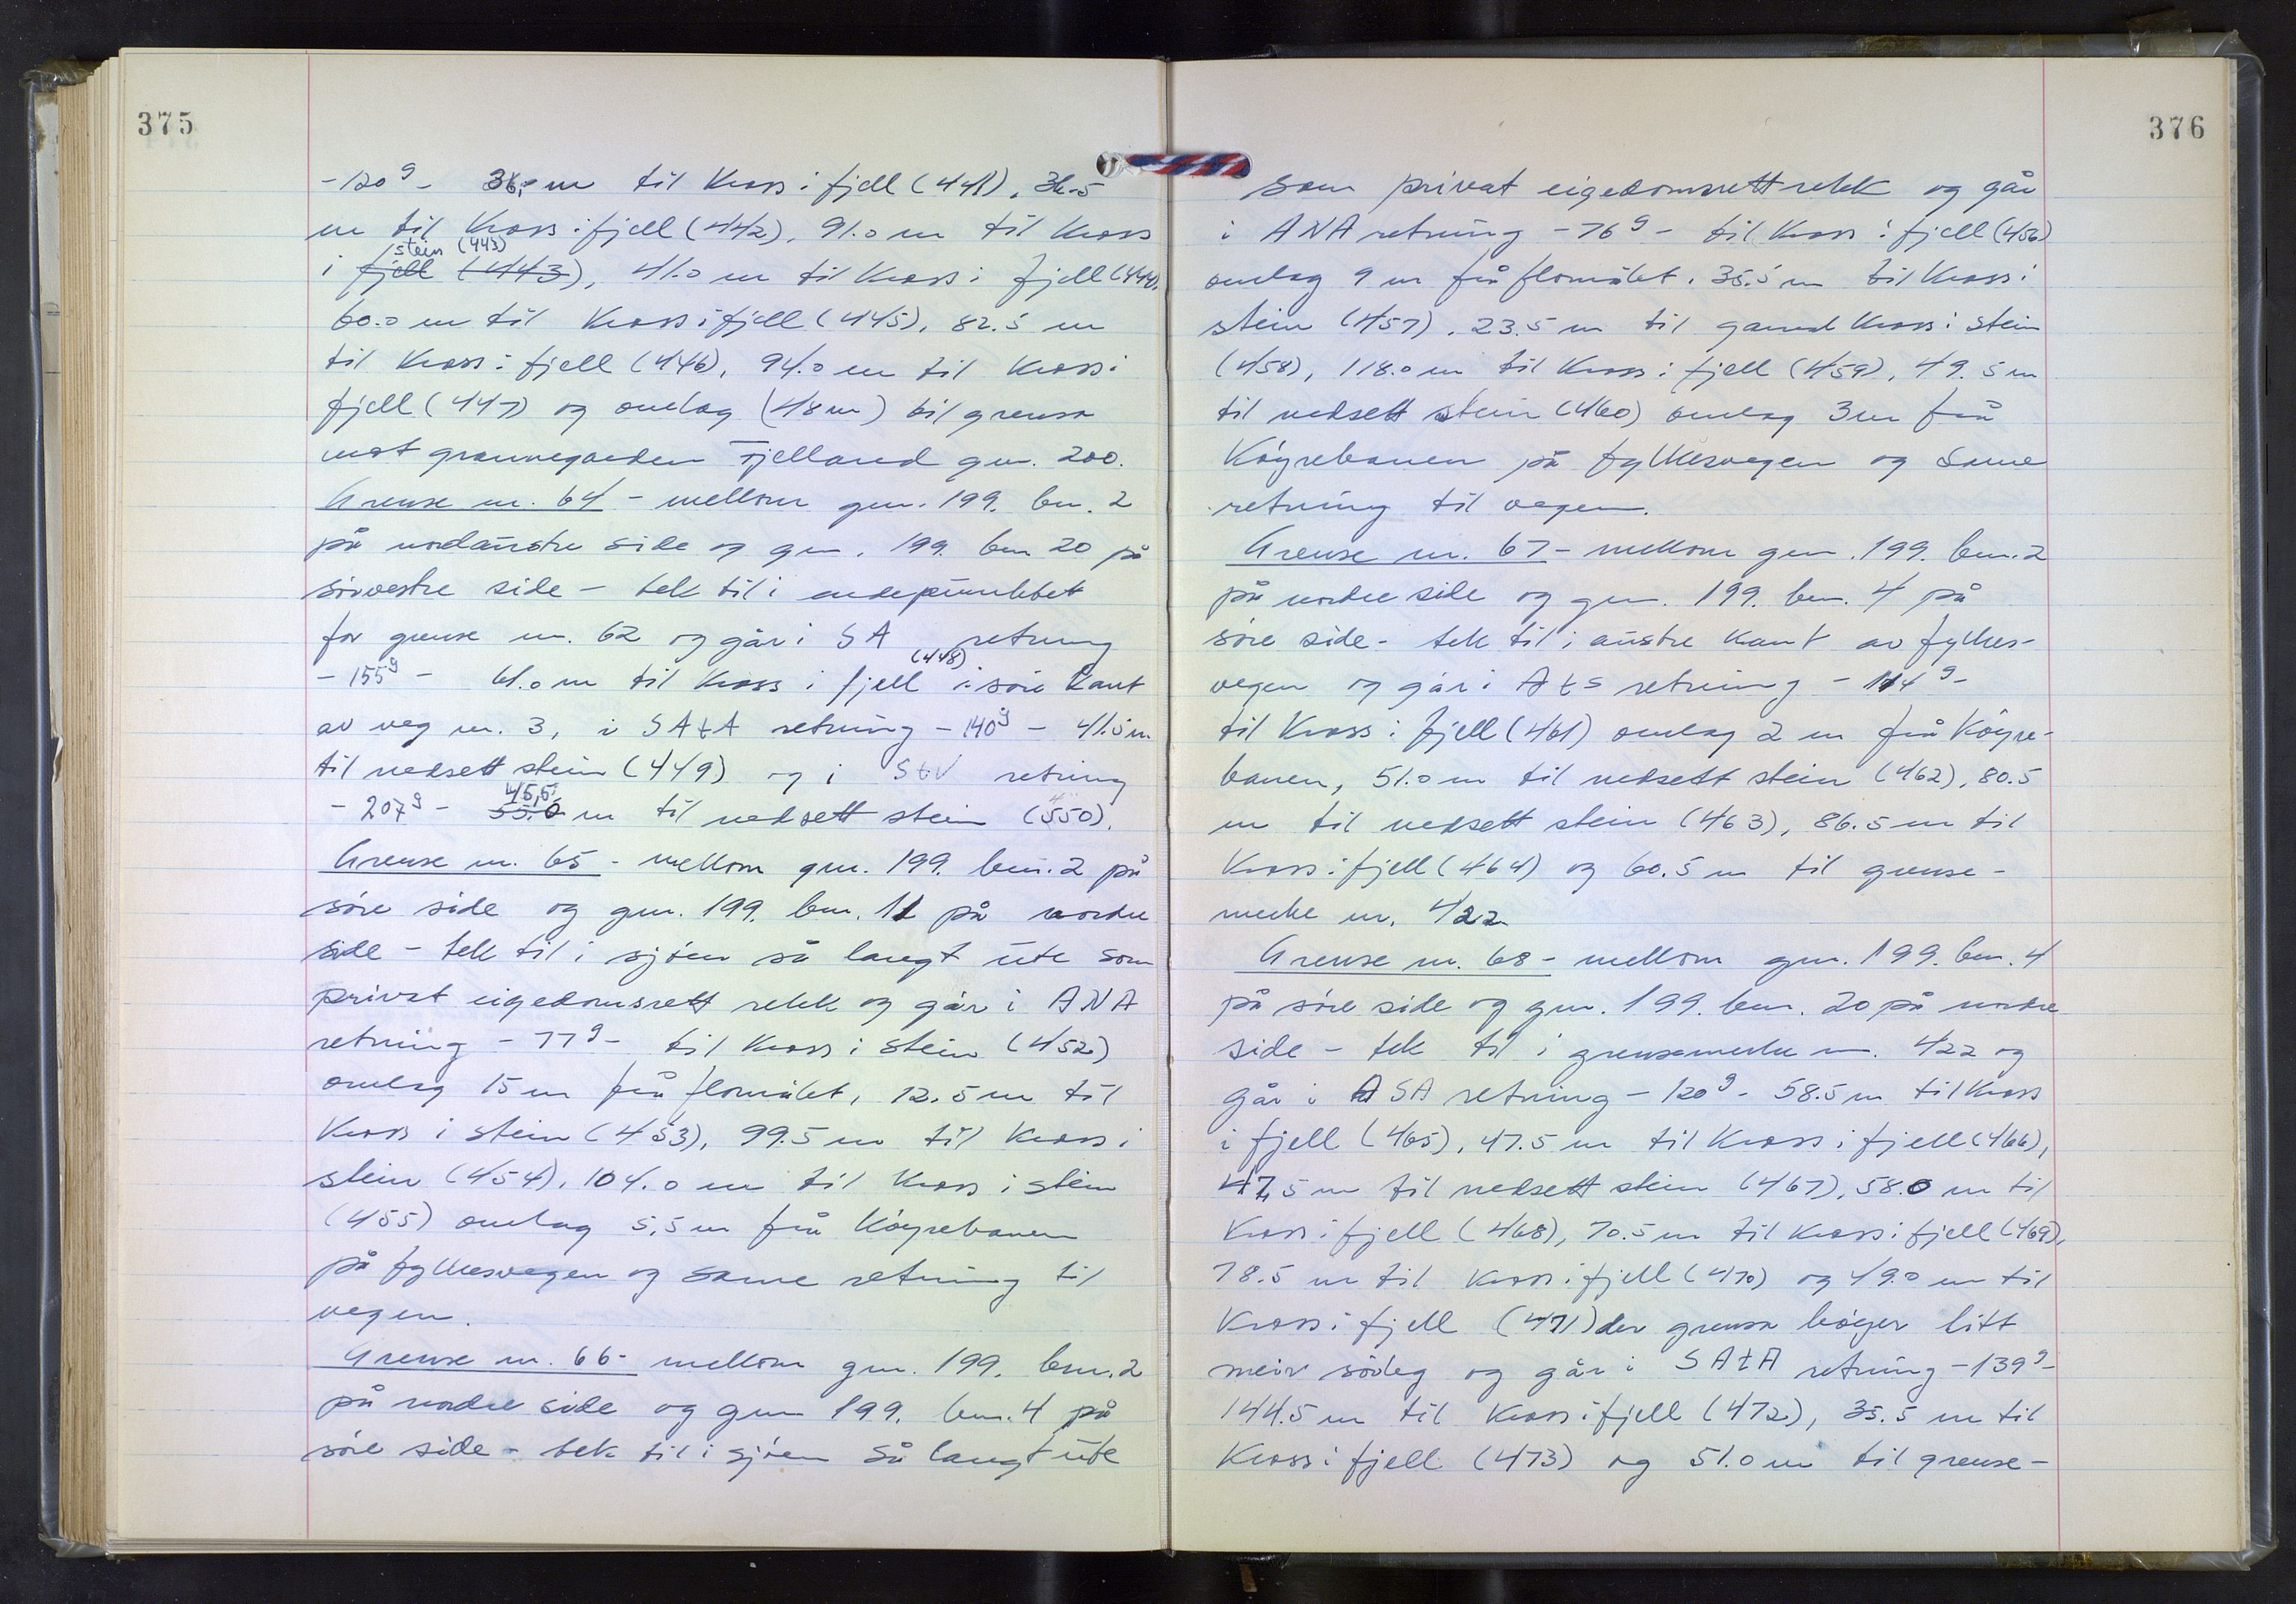 375
-120g- 38,0 m til kross i fjell (441), 36.5
m til kross i fjell (442), 91.0 m til kross
stein (443)
i fjell (443), 41.0 m til kross i fjell (444),
60.0 m til kross i fjell (445), 82.5 m
til kross i fjell (446), 94.0 m til kross i
fjell (447) og omlag (48 m) til grensa
mot grannegarden Fjelland gnr. 200.
Grense nr. 64 - mellom gnr. 199. bnr. 2
på nordaustre side og gnr. 199. bnr 20 på
sørvestre side - tek til i endepunktet
for grense nr. 62 og går i SA retning
(448)
-155g- 61.0 m til kross i fjell i søre kant
av veg nr. 3, i SAtA retning -140g- 41.5 m
til nedsett stein (449) og i StV retning
45,5
-207g- 55.0 m til nedsett stein (550).
Grense nr. 65 - mellom gnr. 199. bnr. 2 på
søre side og gnr. 199. bnr. 11 på nordre
side - tek til i sjøen så langt ute som
privat eigedomsrett rekk og går i ANA
retning -77g- til kross i stein (452)
omlag 15 m frå flomålet, 12.5 m til
kross i stein (453), 99.5 m til kross i
stein (454), 104.0 m til kross i stein
(455) omlag 5,5 m frå køyrebanen
på fylkesvegen og same retning til
vegen.
Grense nr. 66 - mellom gnr. 199. bnr. 2
på nordre side og gnr 199. bnr. 4 på
søre side - tek til i sjøen så langt ute
376
som privat eigedomsrett rekk og går
i ANA retning -76g- til kross i fjell (456)
omlag 9 m frå flomålet. 35.5 m til kross i
stein (457), 23.5 m til gamal kross i stein
(458), 118.0 m til kross i fjell (459), 49.5 m
til nedsett stein (460) omlag 3 m frå
køyrebanen på fylkesvegen og same
retning til vegen.
Grense nr. 67 - mellom gnr. 199. bnr. 2
på nordre side og gnr. 199. bnr. 4 på
søre side - tek til i austre kant av fylkes-
vegen og går i AtS retning -114g-
til kross i fjell (461) omlag 2 m frå køyre-
banen, 51.0 m til nedsett stein (462), 80.5
m til nedsett stein (463), 86.5 m til
kross i fjell (464) og 60.5 m til grense-
merke nr. 422
Grense nr. 68 - mellom gnr. 199. bnr. 4
på søre side og gnr. 199. bnr. 20 på nordre
side - tek til i grensemerke nr. 422 og
går i ASA retning -120g- 58.5 m til kross
i fjell (465), 47.5 m til kross i fjell (466),
47,5 m til nedsett stein (467), 58.0 m til
kross i fjell (468), 70.5 m til kross i fjell (469),
78.5 m til kross i fjell (470) og 49.0 m til
kross i fjell (471) der grensa bøyer litt
meir sørleg og går i SAtA retning -139g-
144.5 m til kross i fjell (472), 35.5 m til
kross i fjell (473) og 51.0 m til grense-